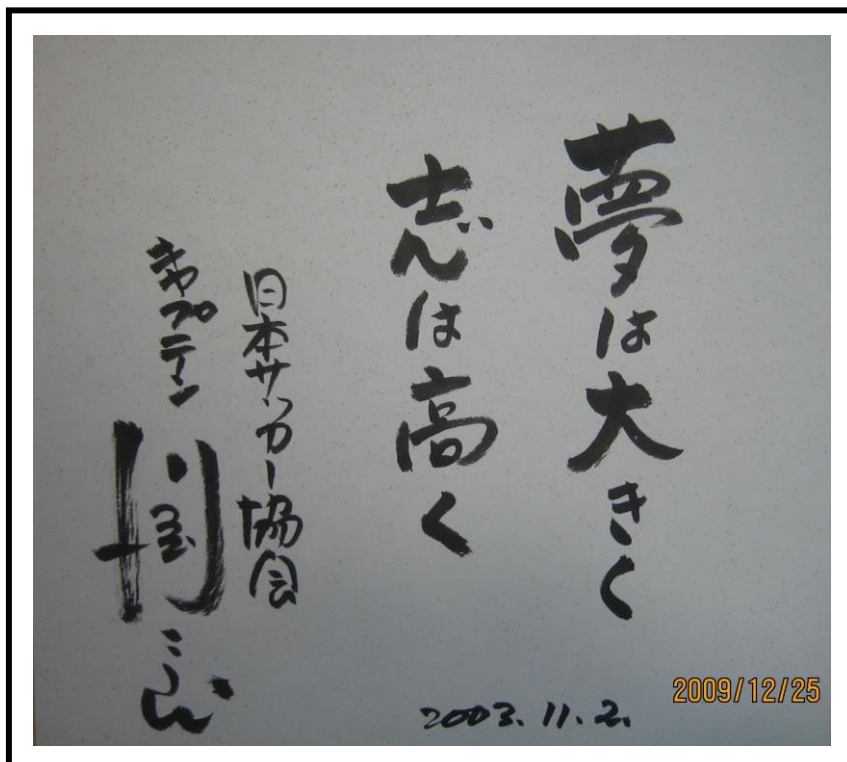 夢は大きく
志は高く
日本サッカー協会
キャプテン
川淵三郎
2003.11.2.
2009/12/25